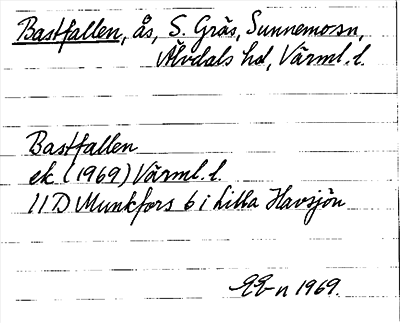 Bastfallen, ås, S. Gräs, Sunnemo sn,
Älvdals hd, Värml. l.
Bastfallen
ek (1969) Värml. l.
11D Munkfors 6 i Lilla Havsjön
n 1969.